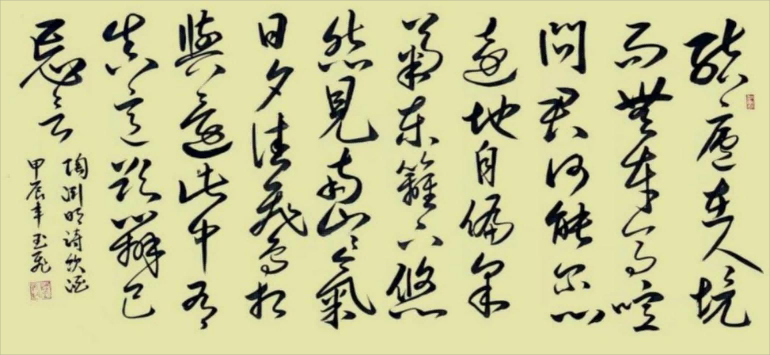 結廬在人境
而無車馬喧
問君何能尔心
遠地自偏采
菊東籬下悠
然見南山々氣
日夕佳飛鳥相
與還此中有
真意欲辨已
忘言
陶渊明詩飲酒
甲辰年玉飛